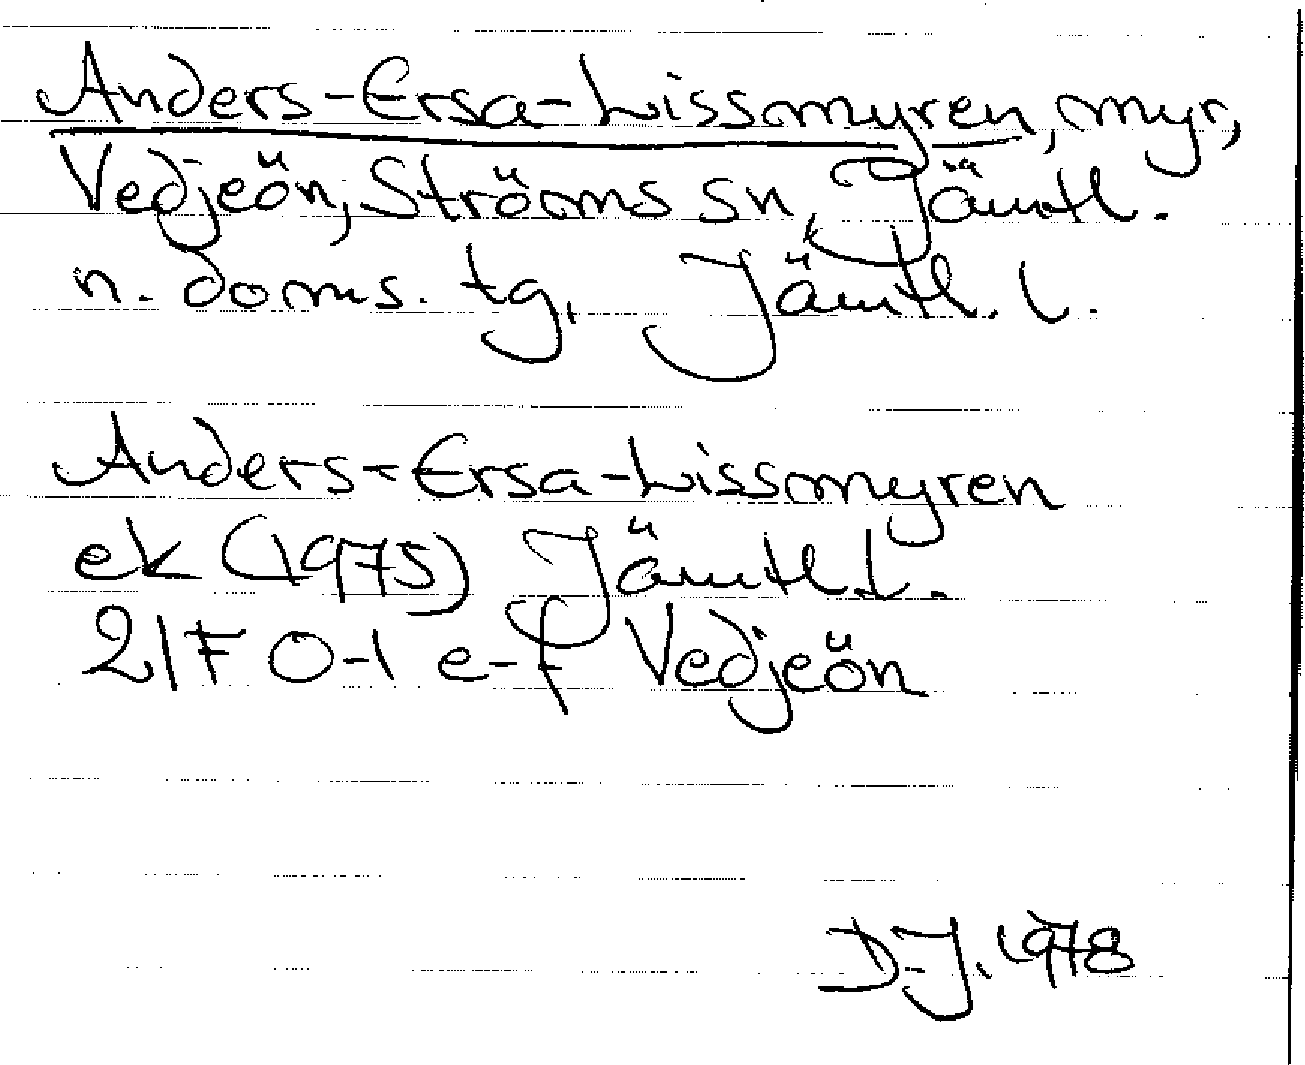 Anders-Ersa-Lissmyren, myr,
Vedjeön, Ströms sn, Jämtl.
n. doms. tg, Jämtl. l.
Anders-Ersa-Lissmyren
ek (1975) Jämtl. l.
21F 0-1 e-f Vedjeön
D.J. 1978